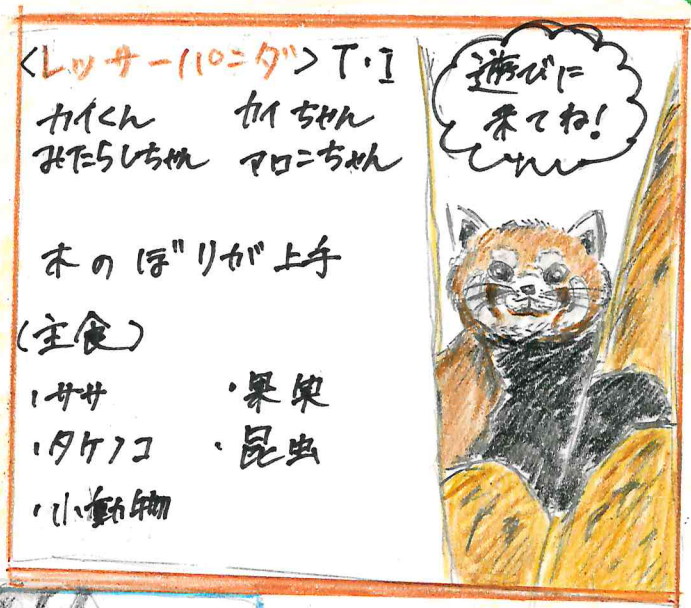 <レッサーパンダ> T・I
カイくん カイちゃん
みたらしちゃん マロニちゃん
木のぼりが上手
(主食)
・ササ ・果実
・タケノコ ・昆虫
・小動物
遊びに
来てね!